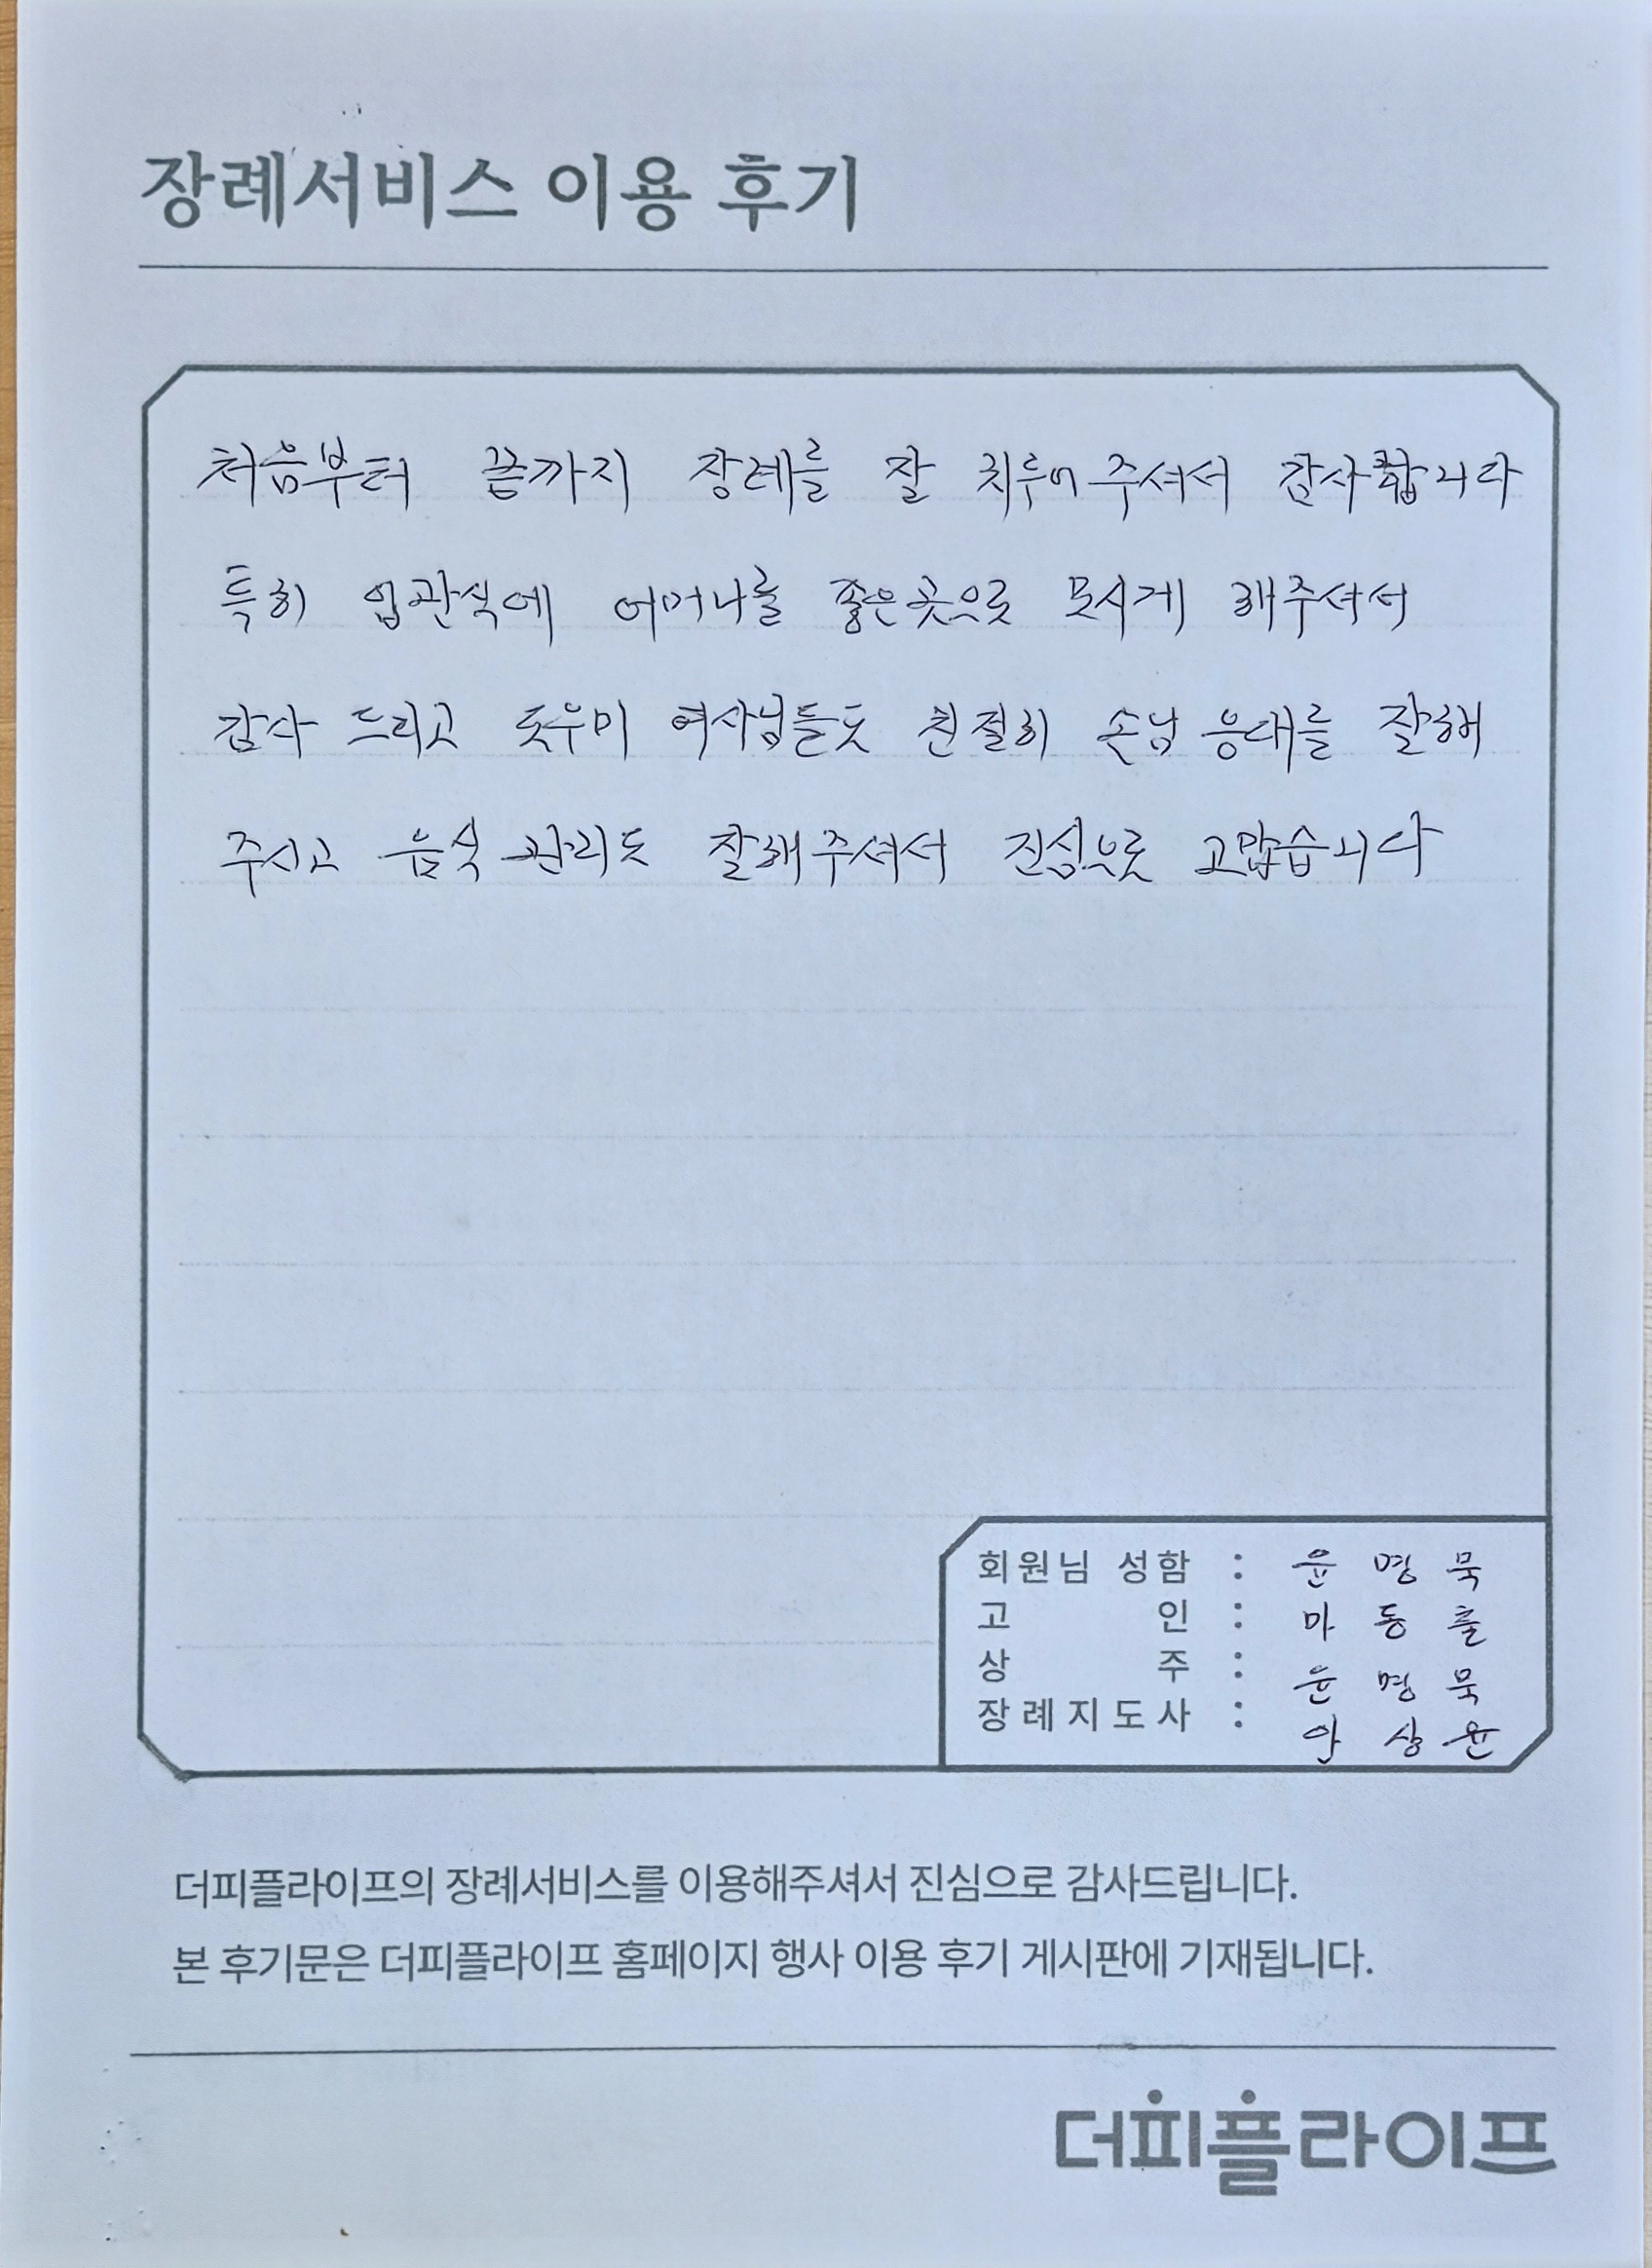 장례서비스 이용 후기
처음부터 끝까지 장례를 잘 치루어 주셔서 감사합니다
특히 입관식에 어머니를 좋은곳으로 모시게 해주셔서
감사 드리고 도우미 여사님들도 친절히 손님 응대를 잘해
주시고 음식 관리도 잘해주셔서 진심으로 고맙습니다
회원님 성함 : 윤 명 묵
고 인 : 마 동 출
상 주 : 윤 명 묵
장례지도사 : 안 상 윤
더피플라이프의 장례서비스를 이용해주셔서 진심으로 감사드립니다.
본 후기문은 더피플라이프 홈페이지 행사 이용 후기 게시판에 기재됩니다.
더피플라이프